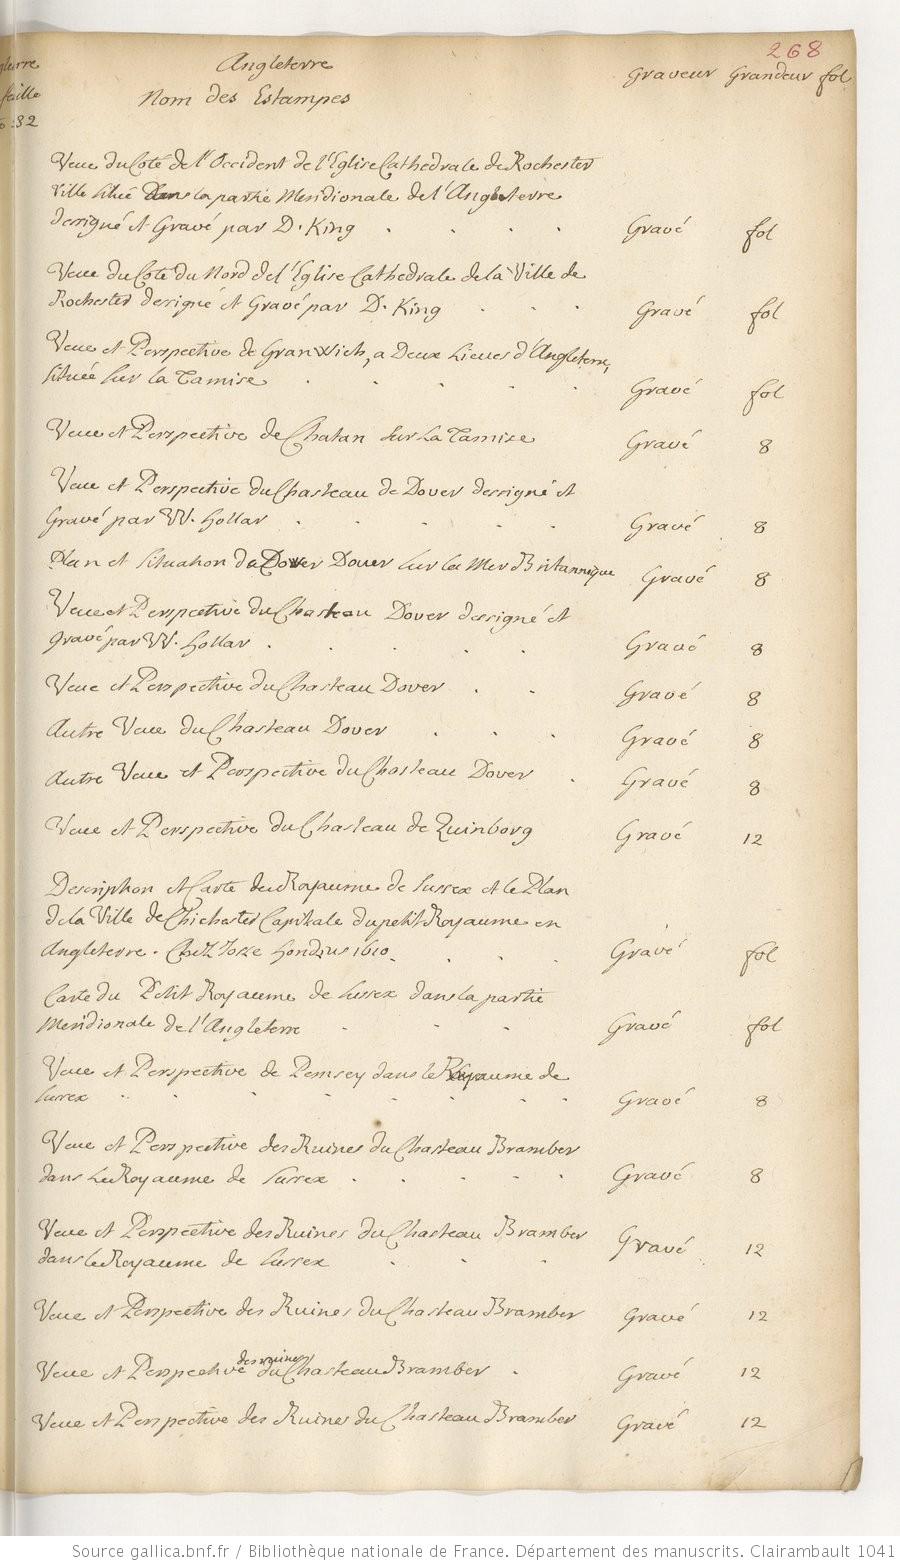 268
Angleterre
Graveur Grandeur fol
Nom des Estampes
feille
32
Veue du Coté de l'Occident de l'Eglise Cathedrale de Rochester
Ville Situé Dans la partie Meridionale de l'Angleterre
dessigné et Gravé par D. King . . . . Gravé fol
Veue du Coté du Nord de l'Eglise Cathedrale de la Ville de
Rochester dessigné et Gravé par D. King . . . Gravé fol
Veue et Perspective de Granwich, a Deux Lieues d'Angleterre,
Située sur la Tamise . . . . . Gravé fol
Veue et Perspective de Chatan sur La Tamise Gravé 8
Veue et Perspective du Chasteau de Dover dessigné et
Gravé par W. Hollar . . . . . Gravé 8
Plan et Situation de Dover Dover sur la Mer Britannique Gravé 8
Veue et Perspective du Chasteau Dover dessigné et
gravé par W. Hollar . . . . . Gravé 8
Veue et Perspective du Chasteau Dover . . Gravé 8
Autre Veue du Chasteau Dover . . . Gravé 8
Autre Veue et Perspective du Chasteau Dover . Gravé 8
Veue et Perspective du Chasteau de Quinborg Gravé 12
Description et Carte du Royaume de Sussex et le Plan
de la Ville de Chichester Capitale du petit Royaume en
Angleterre. Chez Josse Hondius 1610 . . . . Gravé fol
Carte du Petit Royaume de Sussex dans la partie
Meridionale de l'Angleterre . . . Gravé fol
Veue et Perspective de Pemsey dans le Royaume de
Sussex . . . . . . . . Gravé 8
Veue et Perspective des Ruines du Chasteau Bramber
dans Le Royaume de Sussex . . . . . Gravé 8
Veue et Perspective des Ruines du Chasteau Bramber
dans le Royaume de Sussex . . . Gravé 12
Veue et Perspective des Ruines du Chasteau Bramber Gravé 12
des ruines
Veue et Perspective du Chasteau Bramber . Gravé 12
Veue et Perspective des Ruines du Chasteau Bramber Gravé 12
Source gallica.bnf.fr / Bibliothèque nationale de France. Département des manuscrits. Clairambault 1041